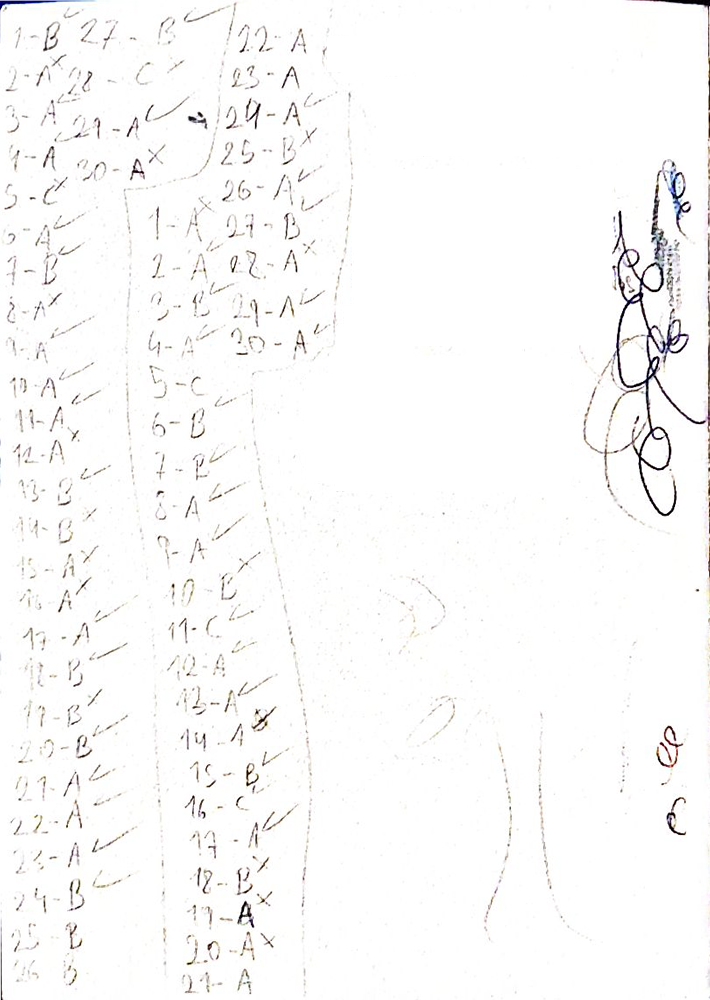 1-B ✓
2-A ×
3-A ✓
4-A ✓
5-C ×
6-A ✓
7-B ✓
8-A ×
9-A ✓
10-A ✓
11-A ✓
12-A ×
13-B ✓
14-B ×
15-A ×
16-A ×
17-A ✓
18-B ✓
19-B ×
20-B ✓
21-A ✓
22-A ✓
23-A ✓
24-B ✓
25-B
26 B
27-B ✓
28-C ✓
29-A ✓
30-A ×
1-A ×
2-A ✓
3-B ✓
4-A ✓
5-C
6-B ✓
7-B ✓
8-A ✓
9-A ✓
10-B ×
11-C ✓
12-A ✓
13-A ✓
14-A ×
15-B ✓
16-C ✓
17-A ✓
18-B ×
19-A ×
20-A ×
21-A
22-A
23-A
24-A ✓
25-B ×
26-A ✓
27-B ✓
28-A ×
29-A ✓
30-A ✓